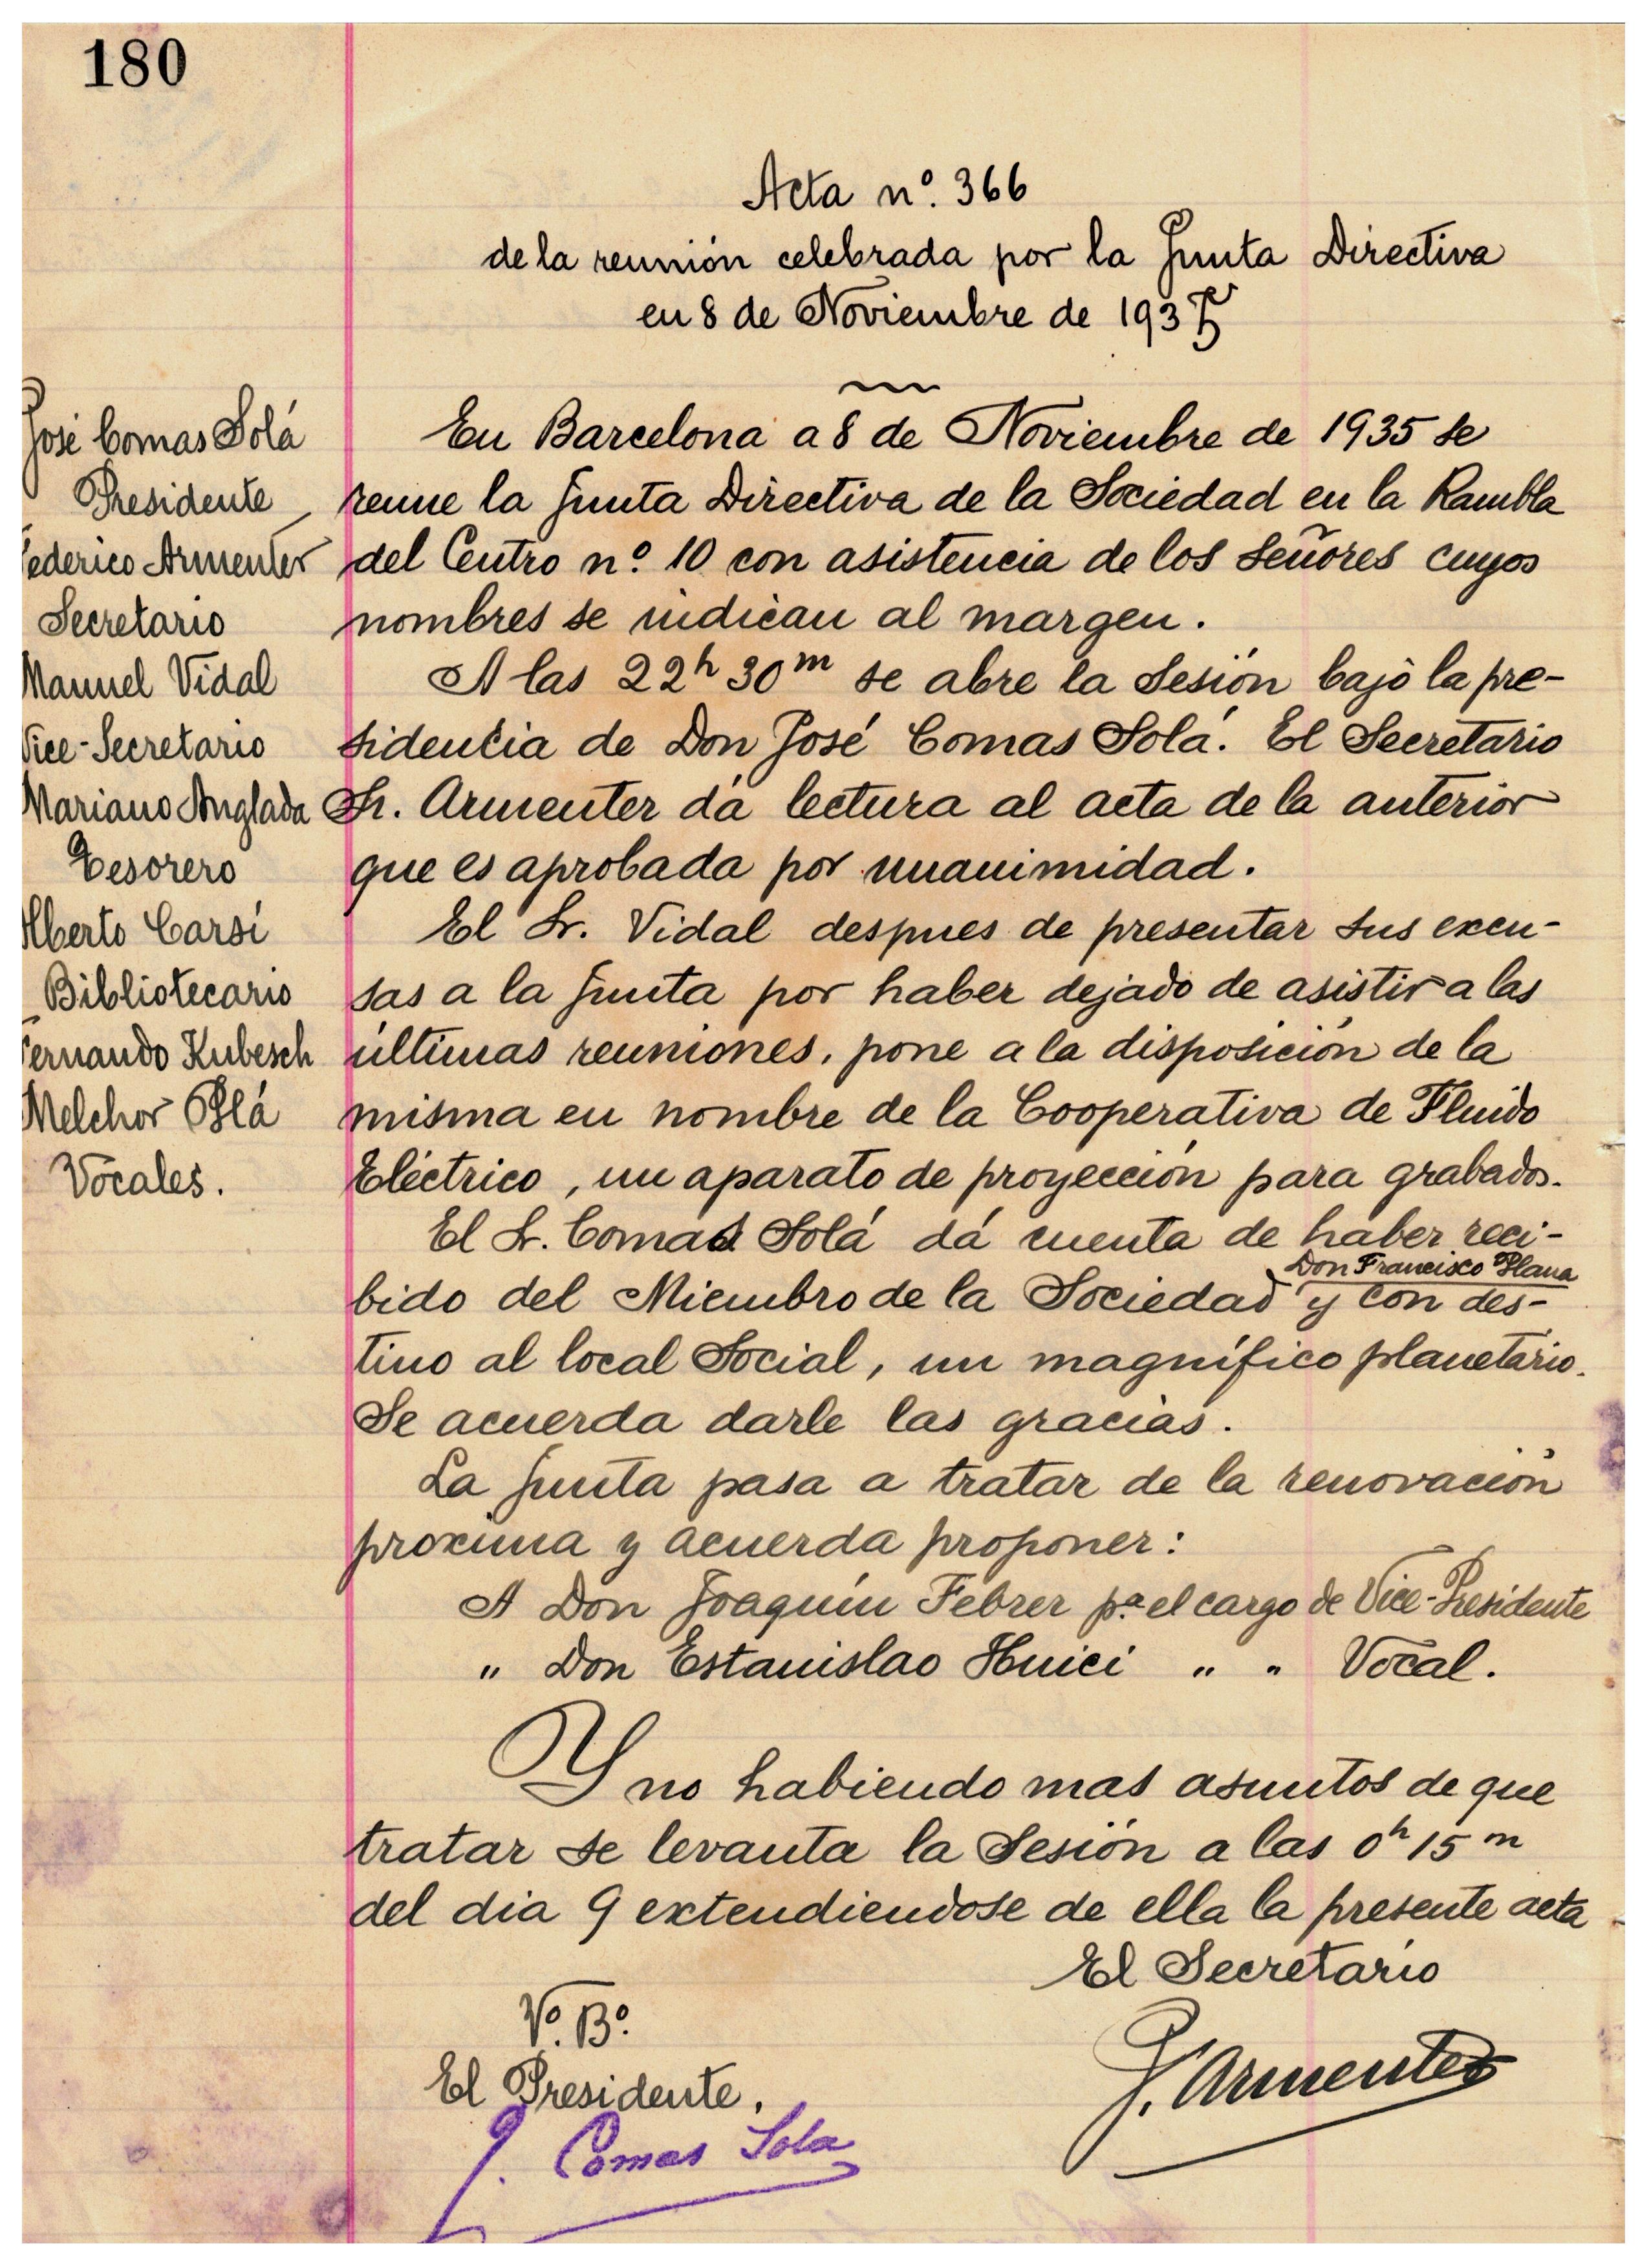 180
Acta nº. 366
de la reunión celebrada por la Junta Directiva
en 8 de Noviembre de 1935
José Comas Solá
Presidente
Federico Armenter
Secretario
Manuel Vidal
Vice-Secretario
Mariano Anglada
Tesorero
Alberto Carsí
Bibliotecario
Fernando Kubesch
Melchor Plá
Vocales.
En Barcelona a 8 de Noviembre de 1935 se
reune la Junta Directiva de la Sociedad en la Rambla
del Centro nº. 10 con asistencia de los Señores cuyos
nombres se indican al margen.
A las 22h 30m se abre la Sesión bajo la pre-
sidencia de Don José Comas Solá. El Secretario
Sr. Armenter dá lectura al acta de la anterior
que es aprobada por unanimidad.
El Sr. Vidal despues de presentar sus excu-
sas a la Junta por haber dejado de asistir a las
últimas reuniones, pone a la disposición de la
misma en nombre de la Cooperativa de Fluido
Eléctrico, un aparato de proyección para grabados.
El Sr. Comas Solá dá cuenta de haber reci-
Don Francisco Plana
bido del Miembro de la Sociedad y con des-
tino al local Social, un magnífico planetario.
Se acuerda darle las gracias.
La Junta pasa a tratar de la renovación
proxima y acuerda proponer:
A Don Joaquín Febrer pª. el cargo de Vice-Presidente
" Don Estanislao Huici " " Vocal.
Y no habiendo mas asuntos de que
tratar se levanta la Sesión a las 0h 15m
del dia 9 extendiendose de ella la presente acta
El Secretario
Vº. Bº.
El Presidente,
F. Armenter
J. Comas Sola